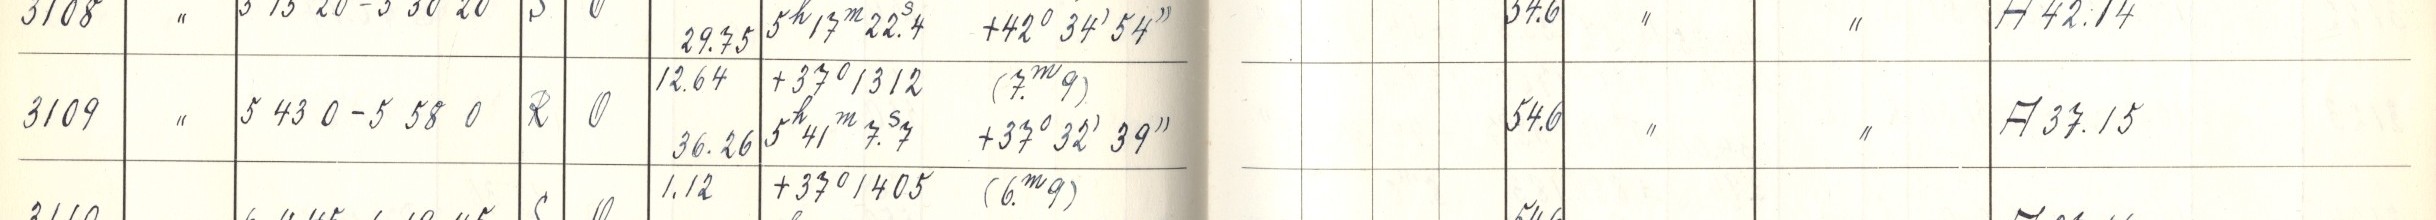 3108 " 5 15 20 - 5 30 20 S O 29.75 5h 17m 22.s4 +42° 34' 54" 54.6 " " A 42.14
12.64 +37° 1312 (7.m9)
3109 " 5 43 0 - 5 58 0 R O 36.26 5h 41m 7.s7 +37° 32' 39" 54.6 " " A 37.15
1.12 +37° 1405 (6.m9)
3110 S O 54.6